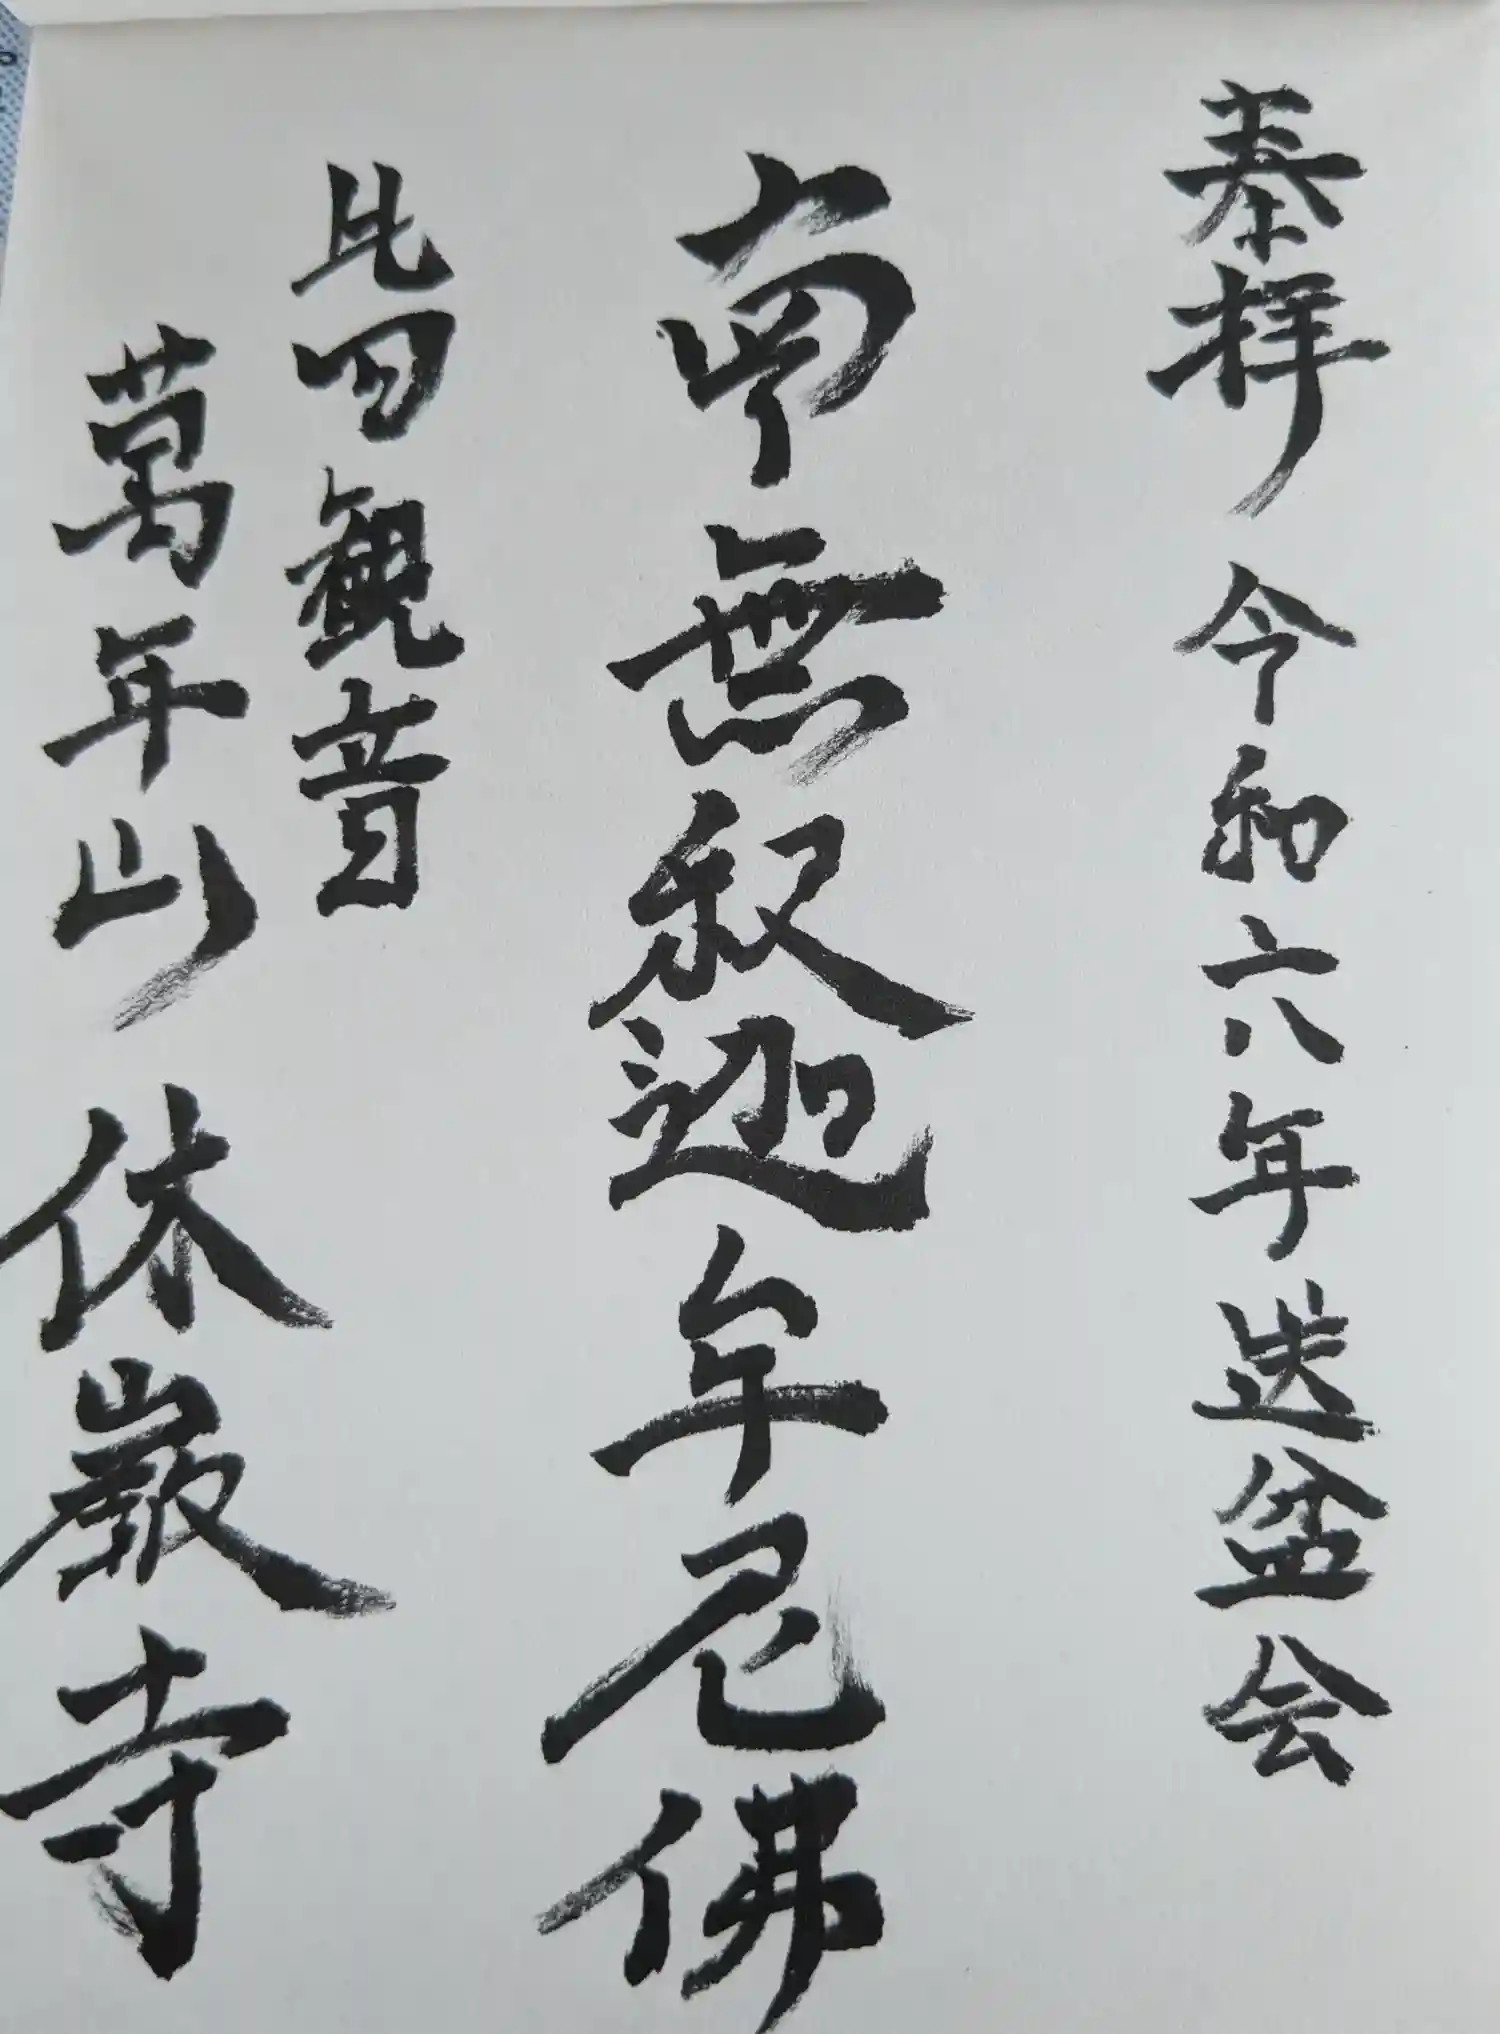 奉拝 令和六年送盆会
南無釈迦牟尼佛
観音
萬年山 休巌寺